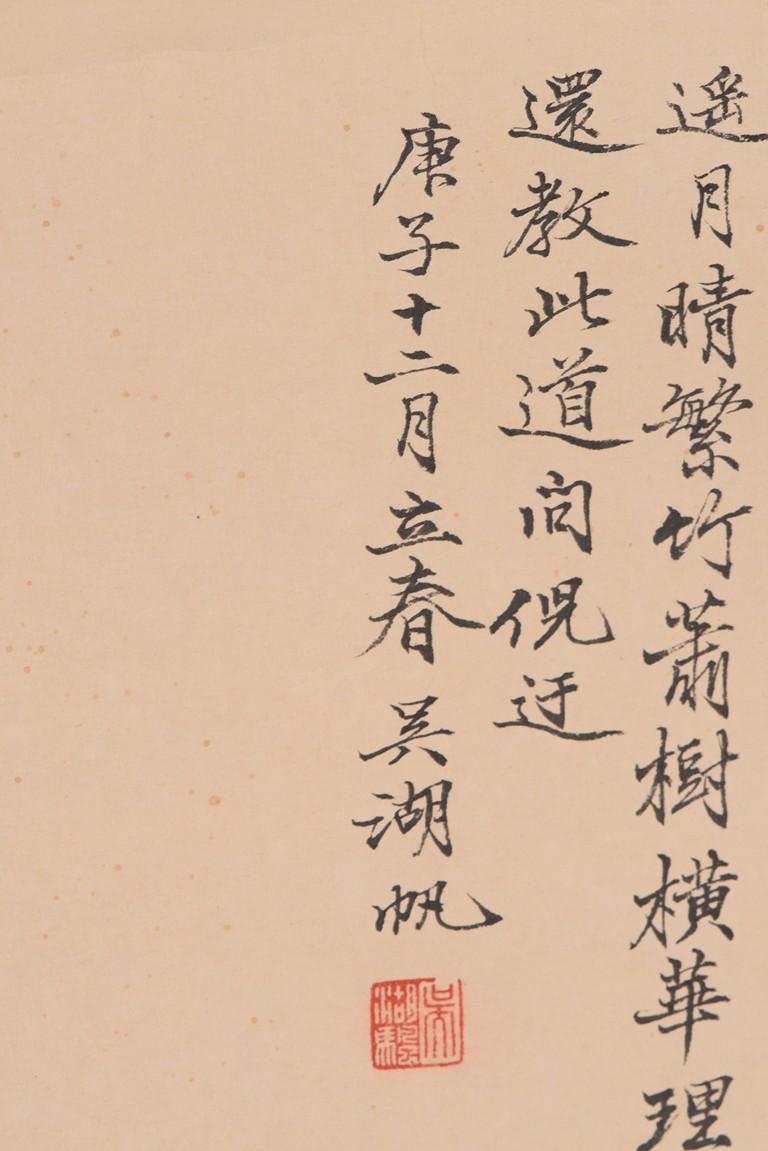 遥月晴繁竹蕭樹橫華理
還教此道問倪迂
庚子十二月立春 吳湖帆
吳湖颿